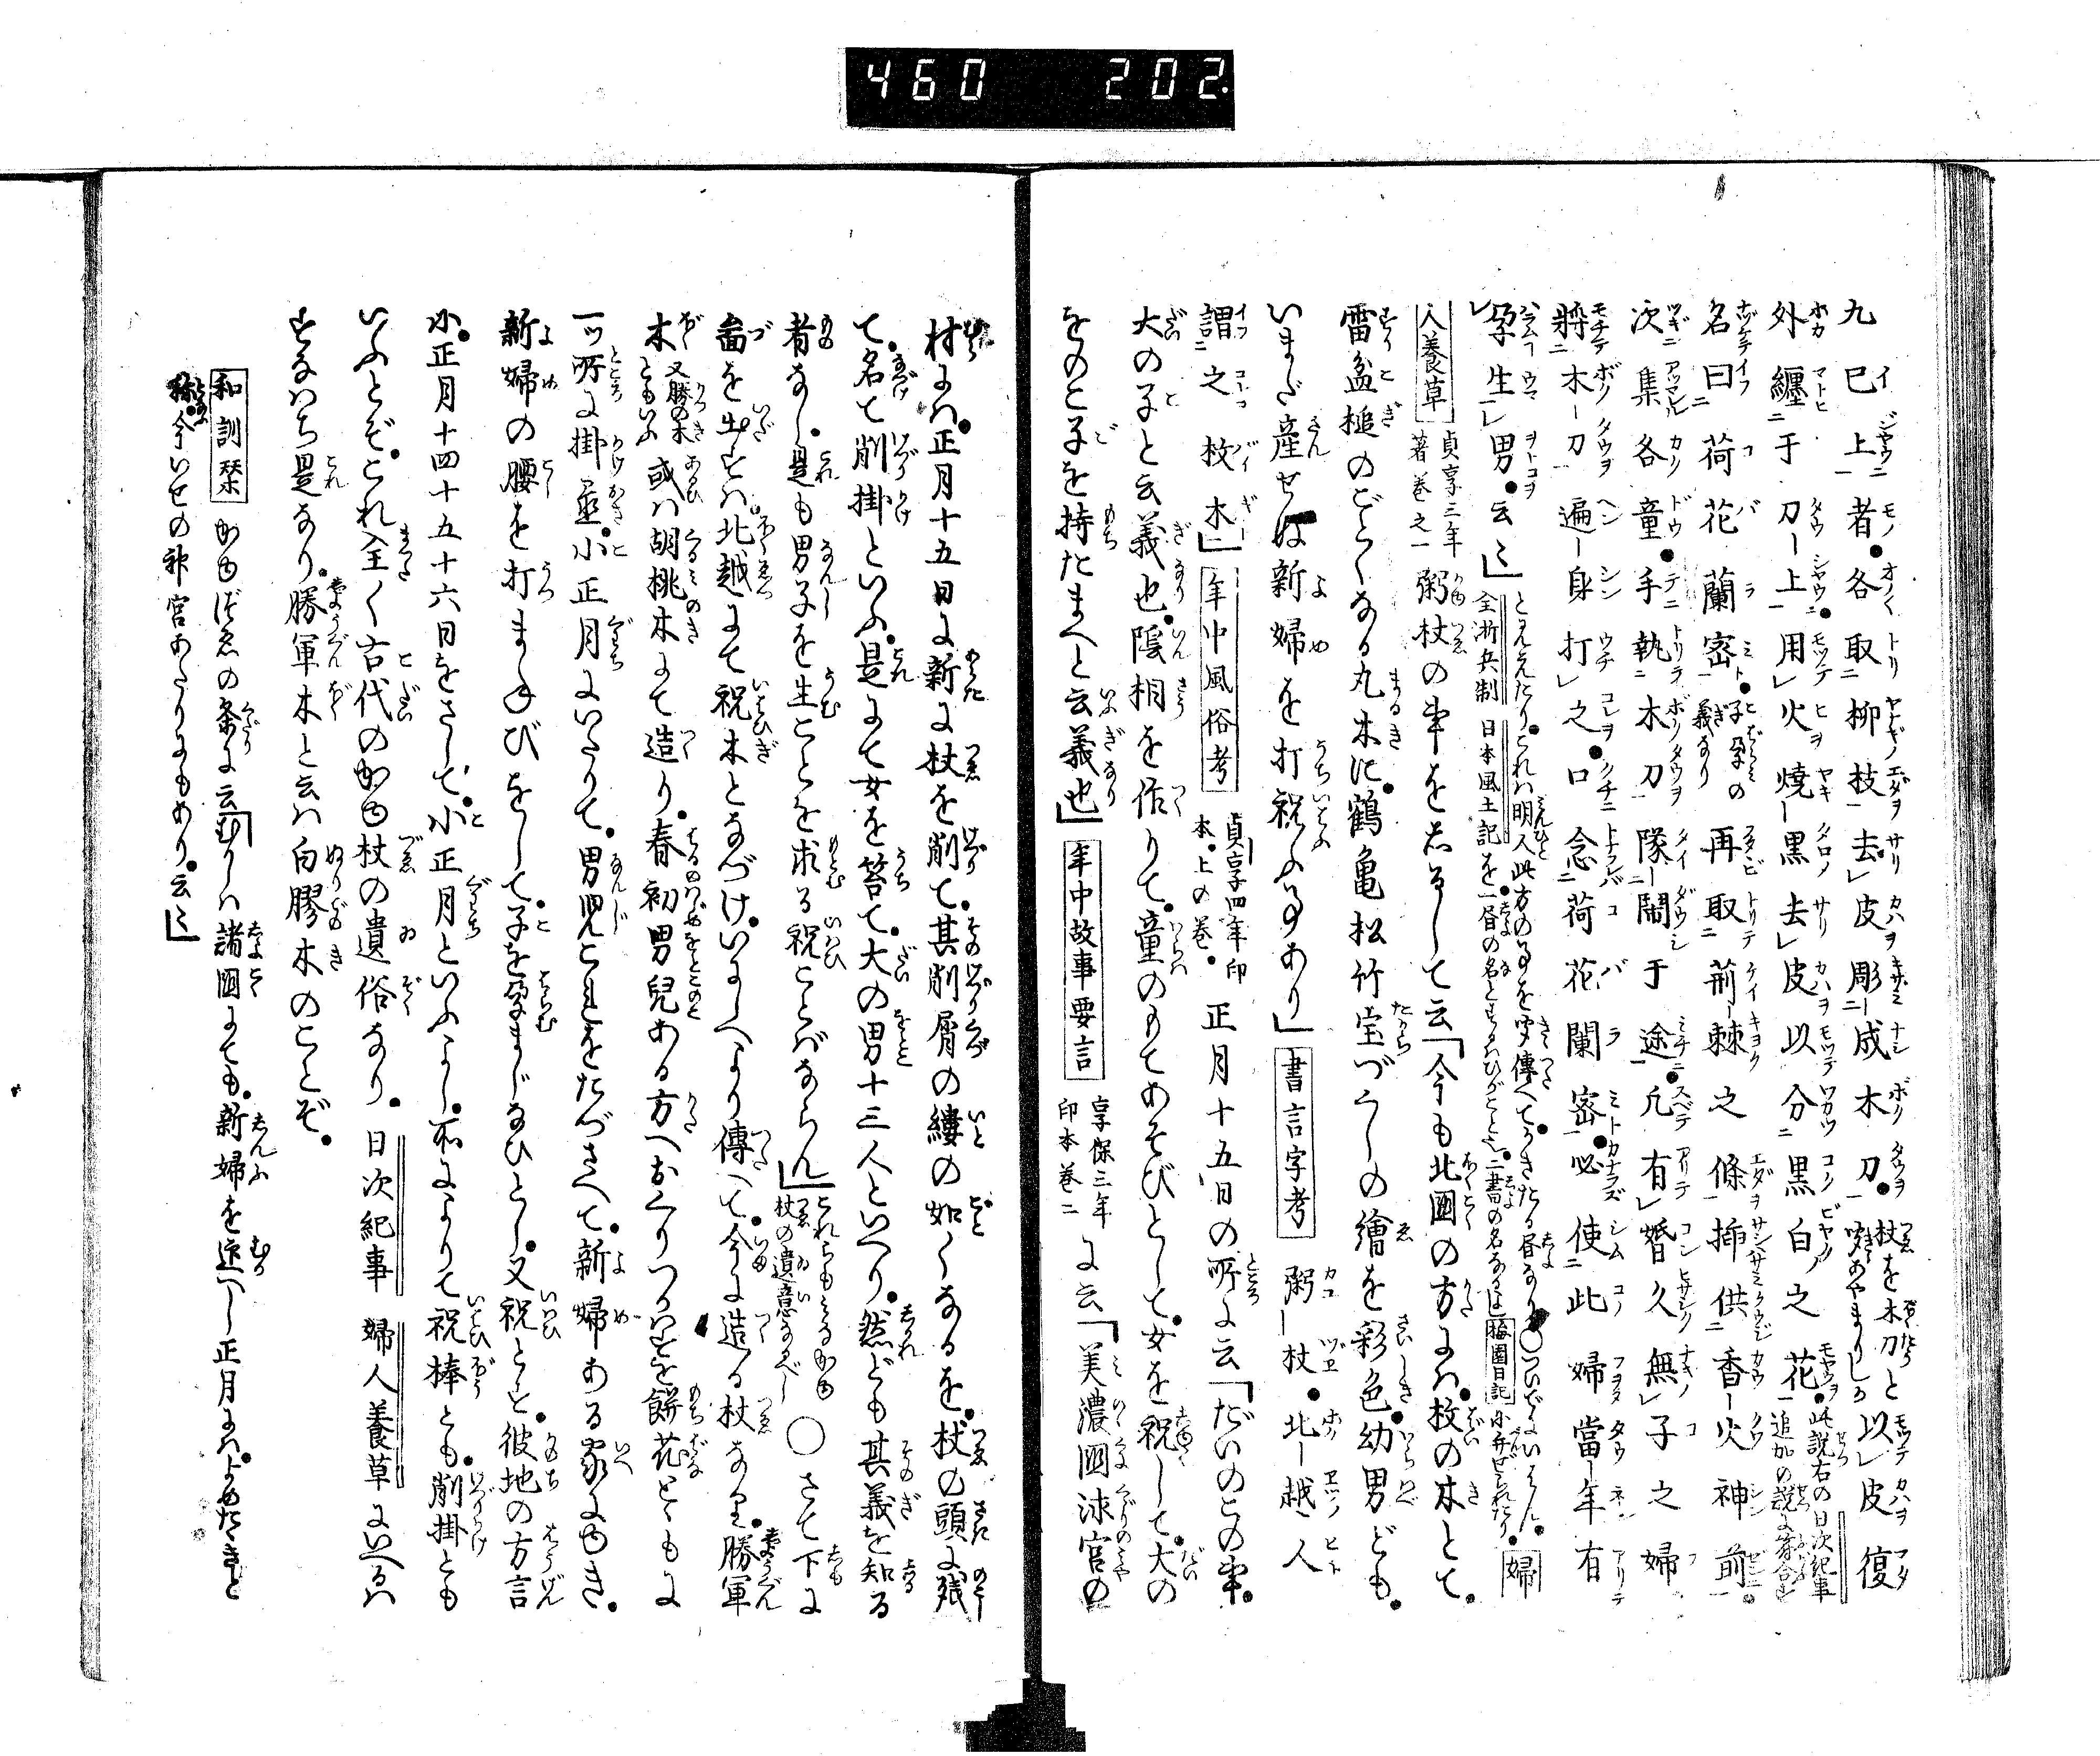 460 202.
九巳上者各取柳枝去皮彫成木刀 杖を木刀と聞きあやまりしか 以皮復
外纏于刀上用火焼黒去皮以分黒白之花 此説右の日次紀事追加の説に符合す
名曰荷花蘭密 子孕の義なり 再取荊棘之條挿供香火神前
次集各童手執木刀隊閙于途凡有婚久無子之婦
将木刀遍身打之口念荷花蘭密必使此婦當年有
孕生男云々」 と見えたり。これハ明人此方の事を聞傳へてかきたる書なり○ついでにいはん。全浙兵制 日本風土記を一書の名とするハひがこと也。二書の名なるよし 梅園日記 小弁ぜられたり。 婦
人養草 貞享三年著巻之一 粥杖の事を志るして云「今も北國の方にハ。枚の木とて。
雷盆槌のごとくなる丸木に。鶴亀松竹宝づくしの繪を彩色。幼男ども。
いまだ産せぬ新婦を打祝ふ事あり」 書言字考 粥杖。北越人
謂之枚木」 年中風俗考 貞享四年印本。上の巻。 正月十五日の所に云「だいのこの事。
大の子と云義也。陰相を作りて。童のもてあそびとして。女を祝して。大の
をのこ子を持たまへと云義也」 年中故事要言 享保三年印本巻二 に云「美濃國洣宮の
村にハ。正月十五日に新に杖を削て。其削屑の縷の如くなるを。杖の頭に残
て。名て削掛といふ。是にて女を笞て。大の男十三人といへり。然ども其義を知る
者なし。是も男子を生ことを求る祝ことばならん」 これらもミなかゆ杖の遺意なるべし ○さて下に
啚を出せるハ。北越にて祝木となづけ。いにしへより傳へて。今に造る杖なり。勝軍
木 又勝の木ともいふ 或ハ胡桃木にて造り。春初男兒ある方へおくりつかはすを餅花とゝもに
一ッ所に掛置。小正月にいたりて。男児これをたづさへて。新婦ある家にゆき。
新婦の腰を打まねびをして。子を孕まじなひとし。又祝とす。彼地の方言
に。正月十四十五十六日をさして。小正月といふよし。所によりて祝棒とも。削掛とも
いふとぞ。これ全く古代のかゆ杖の遺俗なり。 日次紀事 婦人養草 にいへるハ
すなハち是なり。勝軍木と云ハ白膠木のことぞ。
和訓栞 かゆづゑの条に云「むかしハ諸國にても。新婦を迎へし正月にハ。よめたゝきと
称。今いせの神宮あたりにもあり。云々」